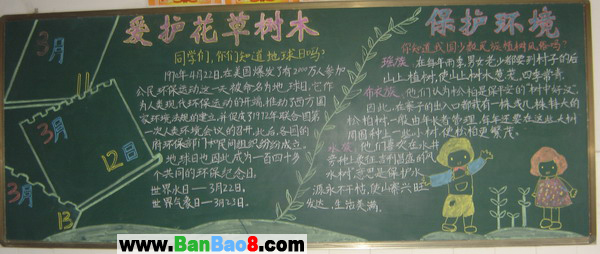 3月
3月
12日
3月
13
爱护花草树木
同学们，你们知道地球日吗？
1970年4月22日，在美国爆发了有2000万人参加
公民环保运动这一天被命名为地球日，它作
为人类现代环保运动的开端，推动了西方国
家环境法规的建立，并促成了1972年联合国第
一次人类环境会议的召开，此后，各国的
府环保部门和民间组织纷纷成立。
地球日也因此成为一百四十多
个共同的环保纪念日。
世界水日——3月22日，
世界气象日——3月23日。
保护环境
你知道我国少数民族植树风俗吗？
瑶族，在每年雨季，男女老少都要到村子的后
山上植树，使山上树木葱茏，四季常青
布依族，他们认为松柏是保平安的“树中好汉”，
因此，在寨子的出入口都栽有一株或几株特大的
松柏树，一般由年长者管理，每年还要在这些大树
周围种上一些小树，使松柏更繁茂。
水族，他们喜欢在水井
旁种上象征吉利昌盛的风
水树，意思是保护水
源永不干枯，使山寨兴旺
发达，生活美满。
www.BanBao8.com